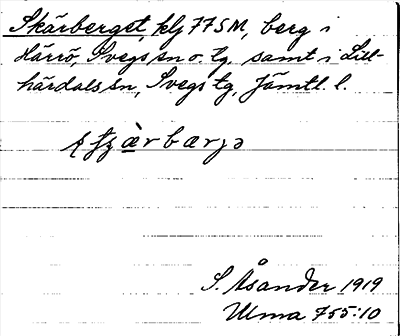 Skärberget, klj 775M, berg i
Härrö, Svegs sn o. tg. samt i Lill-
härdals sn, Svegs tg, Jämtl. l.
S. Åsander 1919
Ulma 755:10